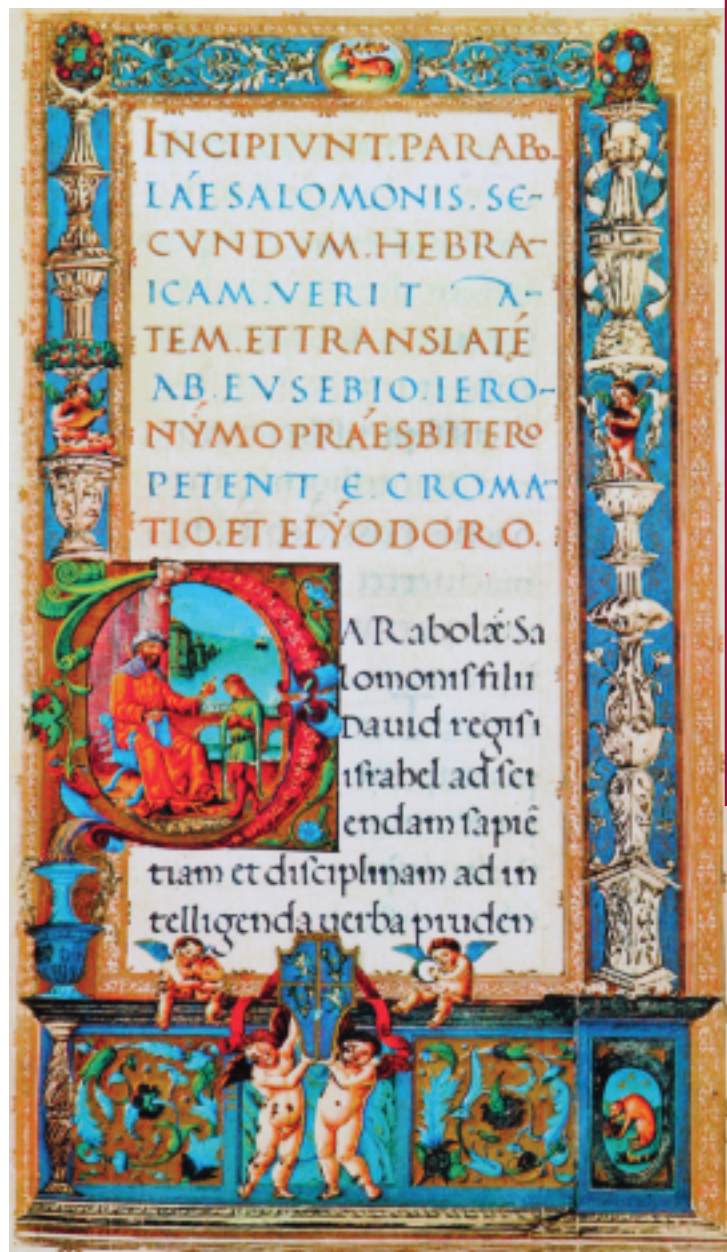 INCIPIVNT.PARABO-
LÁE SALOMONIS. SE-
CVNDVM.HEBRA-
ICAM.VERITA-
TEM.ET TRANSLATÉ
AB.EVSEBIO.IERO-
NÝMO PRÁESBITERO
PETENTE.CROMA-
TIO.ET ELÝODORO.
PARabolæ Sa
lomonis filii
Dauid regis i
israhel ad sci
endam sapiē
tiam et disciplinam ad in
telligenda uerba pruden